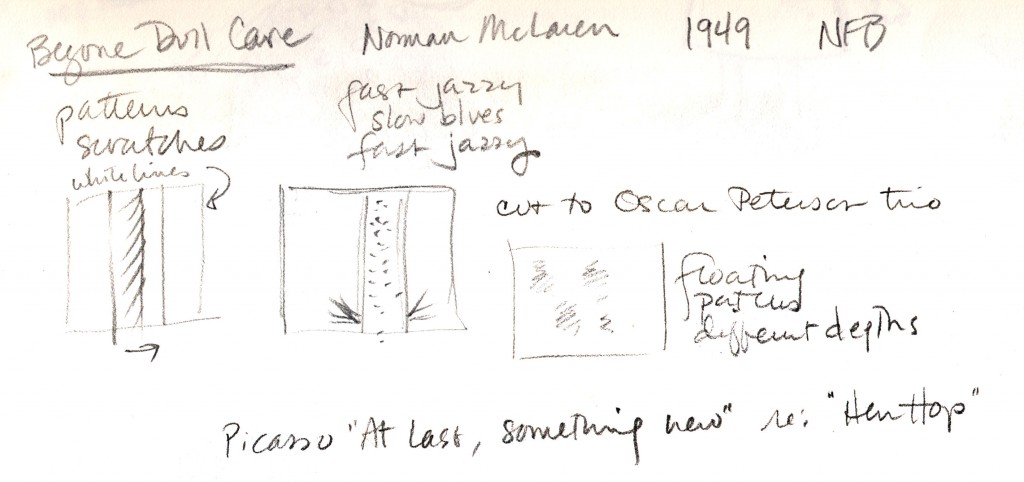 Begone Dull Care Norman McLaren 1949 NFB
patterns
scratches
white lines
fast jazzy
slow blues
fast jazzy
cut to Oscar Peterson trio
floating
patches
different depths
Picasso "At last, something new" re: "Hen Hop"